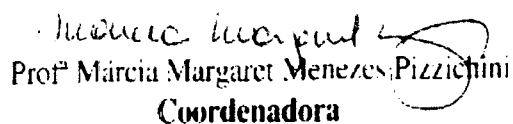 Profª Márcia Margaret Menezes Pizzichini
Coordenadora